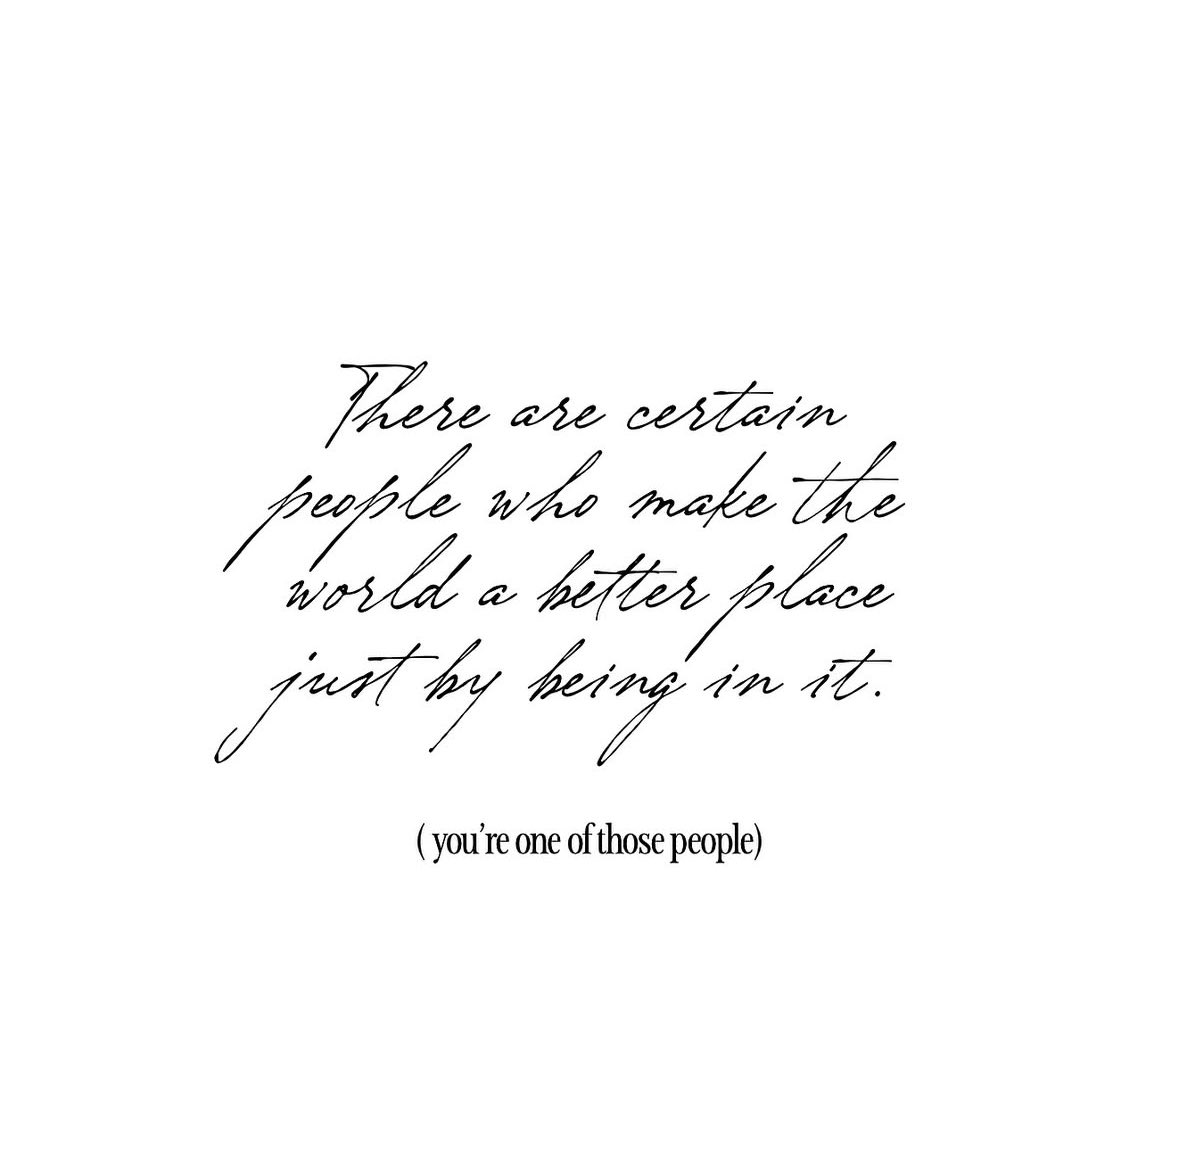 There are certain
people who make the
world a better place
just by being in it.
( you're one of those people)